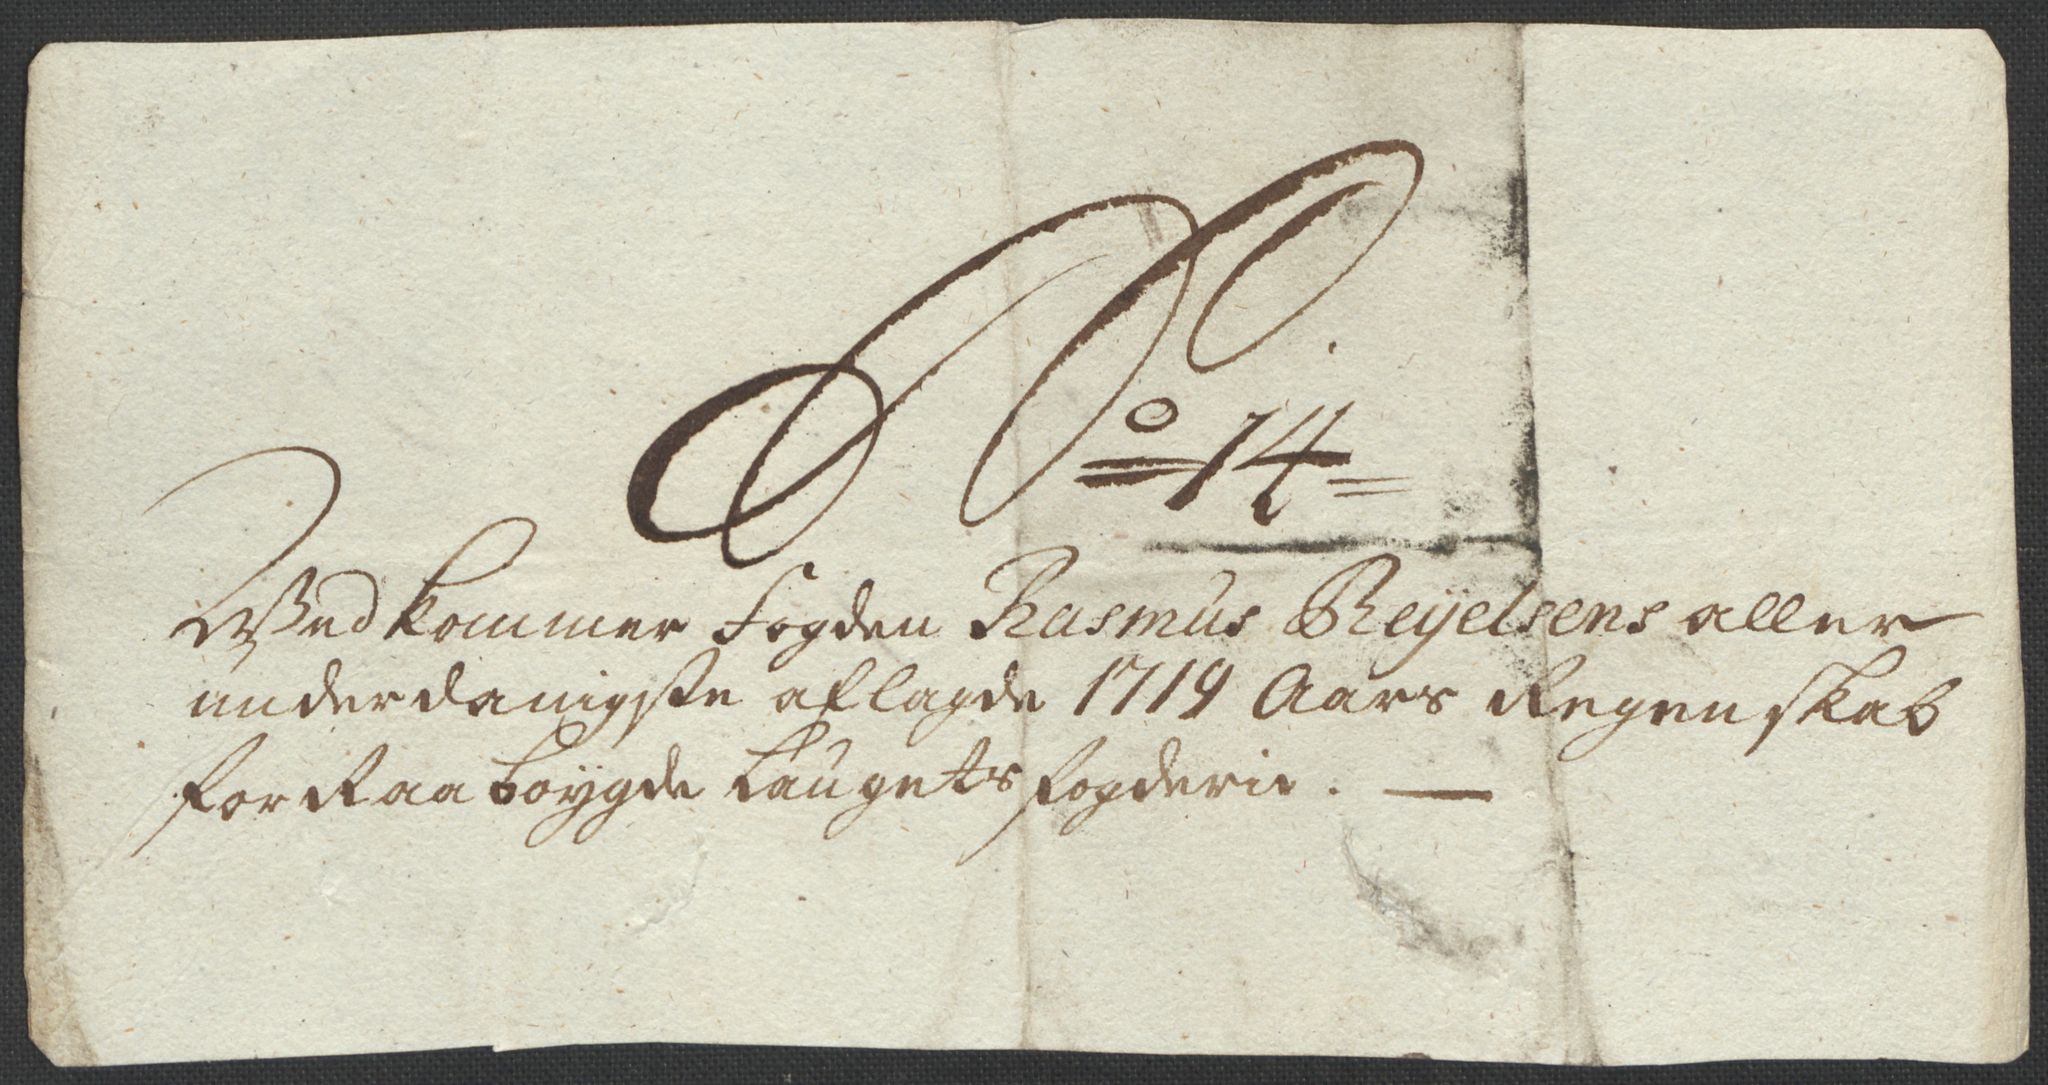 No 14
Vedkommer Fogden Rasmus Reyelsens aller
underdanigste aflagde 1719 Aars Regenskab
for Raaboygde Laugets fogderie.